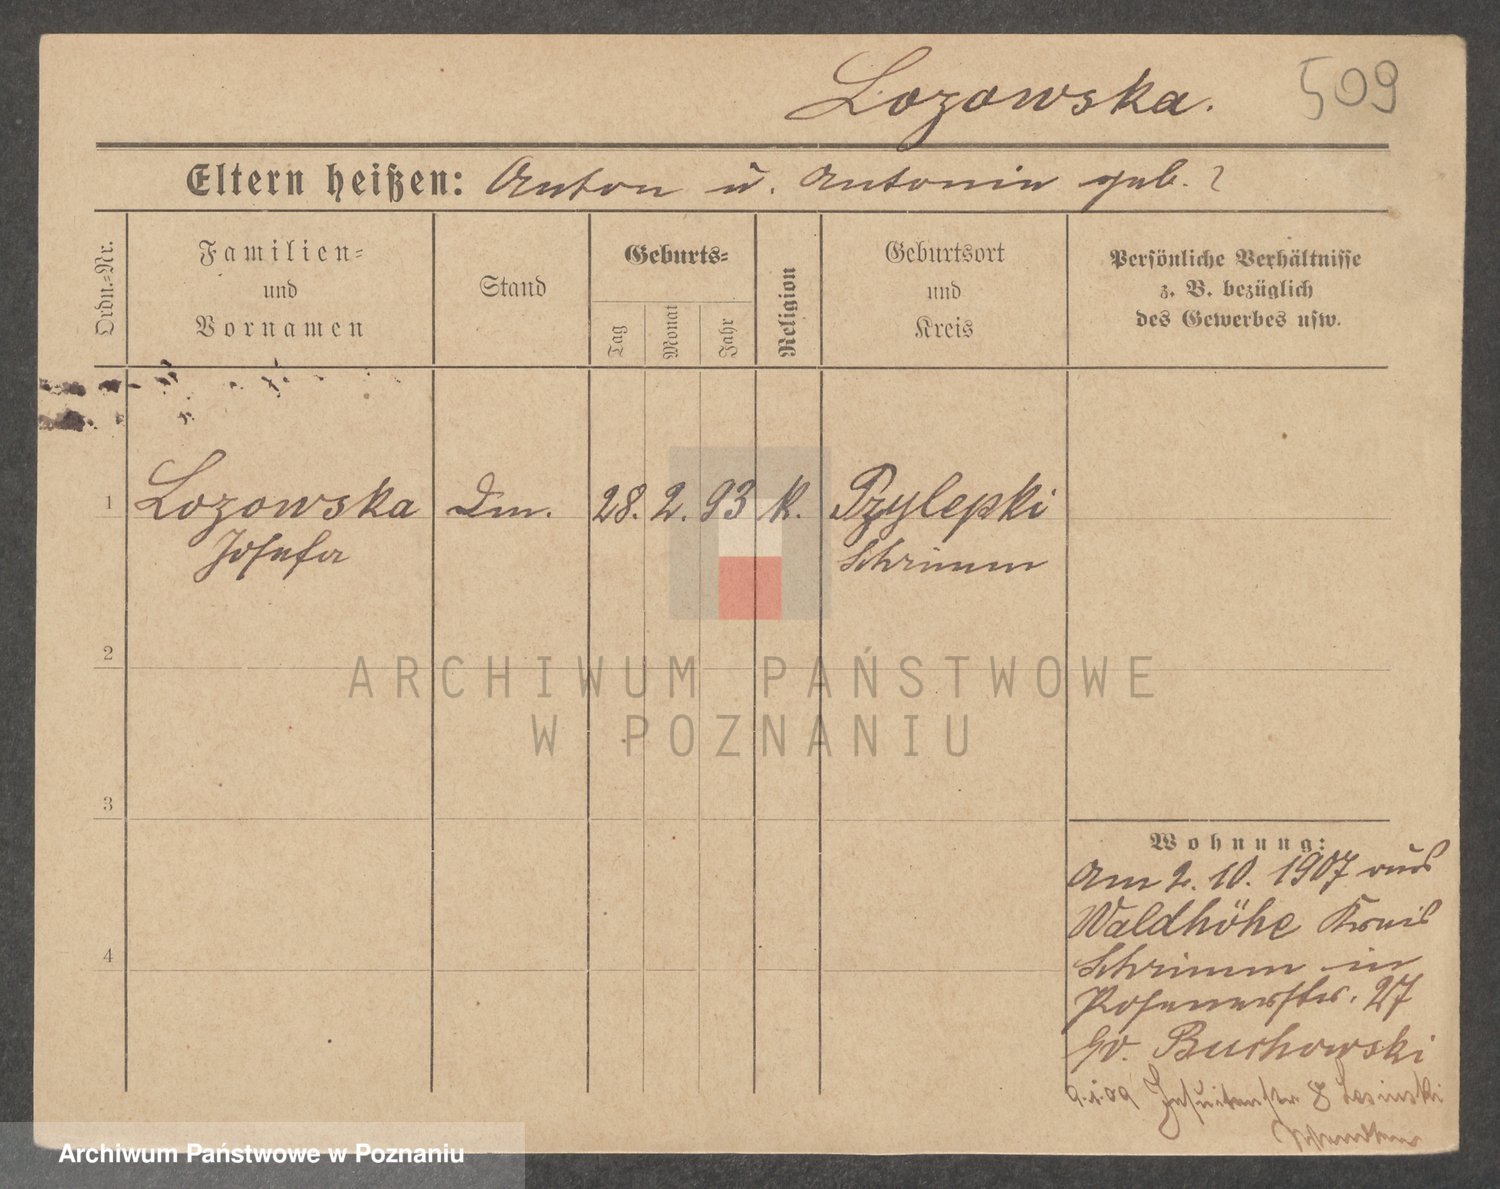 Lozowska. 509
Eltern heißen: Anton u. Antonin geb. ?
Ordn.=Nr.
Familien=
und
Vornamen
Stand
Geburts=
Tag
Monat
Jahr
Religion
Geburtsort
und
Kreis
Persönliche Verhältnisse
z. B. bezüglich
des Gewerbes usw.
1 Lozowska Dm. 28. 2. 93 k. Pzylepki
Josefa Schrimm
2
3
4
Wohnung:
Am 2. 10. 1907 aus
Waldhöhe Kreis
Schrimm in
Posenerstr. 27
bv. Buchowski
9.1.09 Jesuitenstr 8 Lesinski
ARCHIWUM PAŃSTWOWE
W POZNANIU
Archiwum Państwowe w Poznaniu